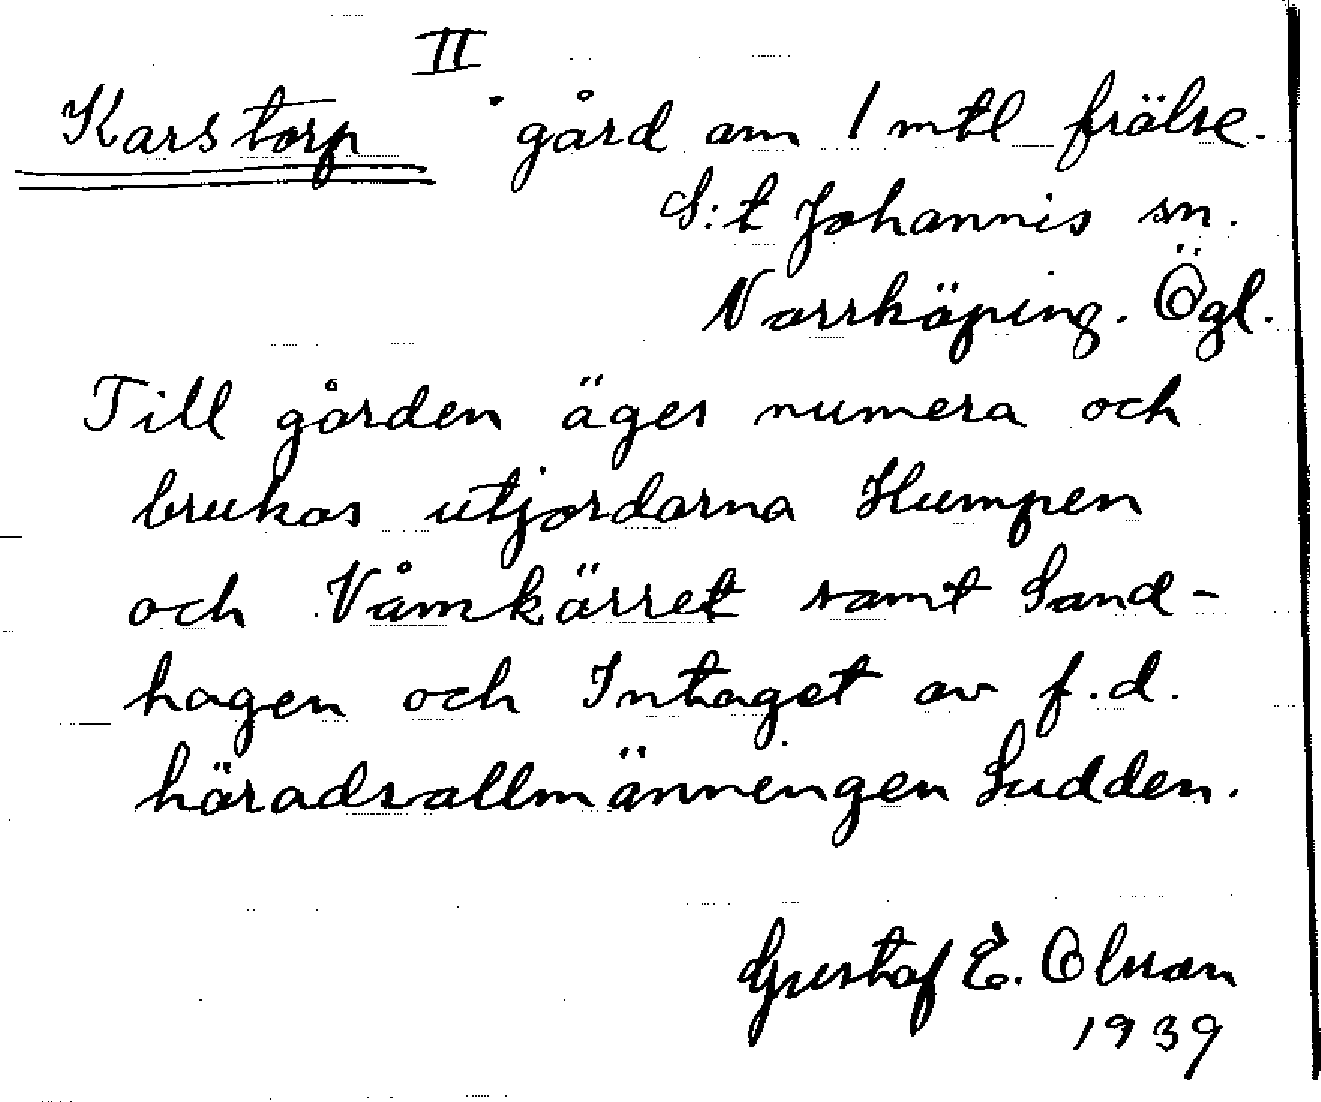 II
Karstorp gård om 1 mtl frälse.
S:t Johannis sn.
Norrköping. Ögl.
Till gården äges numera och
brukas utjordarna Humpen
och Våmkärret samt Sand-
hagen och Intaget av f.d.
häradsallmänningen Sudden.
Gustaf E. Olsson
1939